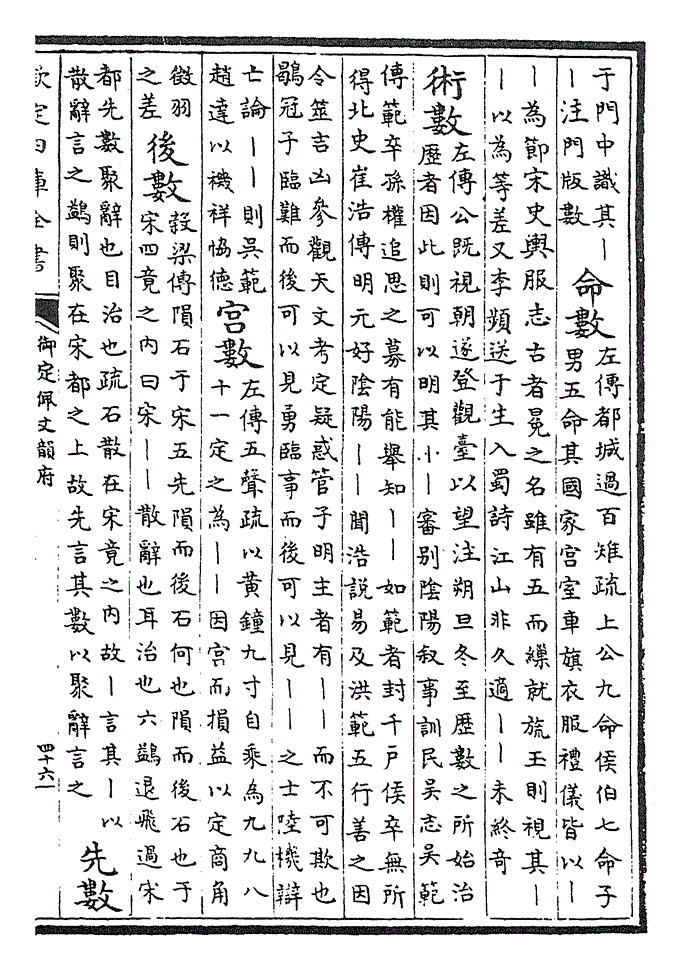 于門中識其｜
｜注門版數
命數
左傳都城過百雉疏上公九命侯伯七命子
男五命其國家宫室車旗衣服禮儀皆以｜
｜為節宋史輿服志古者冕之名雖有五而繅就旒玉則視其｜
｜以為等差又李頻送于生入蜀詩江山非久適｜｜未終竒
術數
左傳公既視朝遂登觀臺以望注朔旦冬至歴數之所始治
歴者因此則可以明其小｜審别陰陽叙事訓民吴志吴範
傳範卒孫權追思之募有能舉知｜｜如範者封千戸侯卒無所
得北史崔浩傳明元好陰陽｜｜聞浩説易及洪範五行善之因
令筮吉凶參觀天文考定疑惑管子明主者有｜｜而不可欺也
鶡冠子臨難而後可以見勇臨事而後可以見｜｜之士陸機辯
亡論｜｜則吴範
趙達以禨祥協德
宫數
左傳五聲疏以黄鐘九寸自乗為九九八
十一定之為｜｜因宫而損益以定商角
徵羽
之差
後數
穀梁傳隕石于宋五先隕而後石何也隕而後石也于
宋四竟之内曰宋｜｜散辭也耳治也六鷁退飛過宋
都先數聚辭也目治也疏石散在宋竟之内故｜言其｜以
散辭言之鷁則聚在宋都之上故先言其數以聚辭言之
先數
欽定四庫全書
御定佩文韻府
四十六